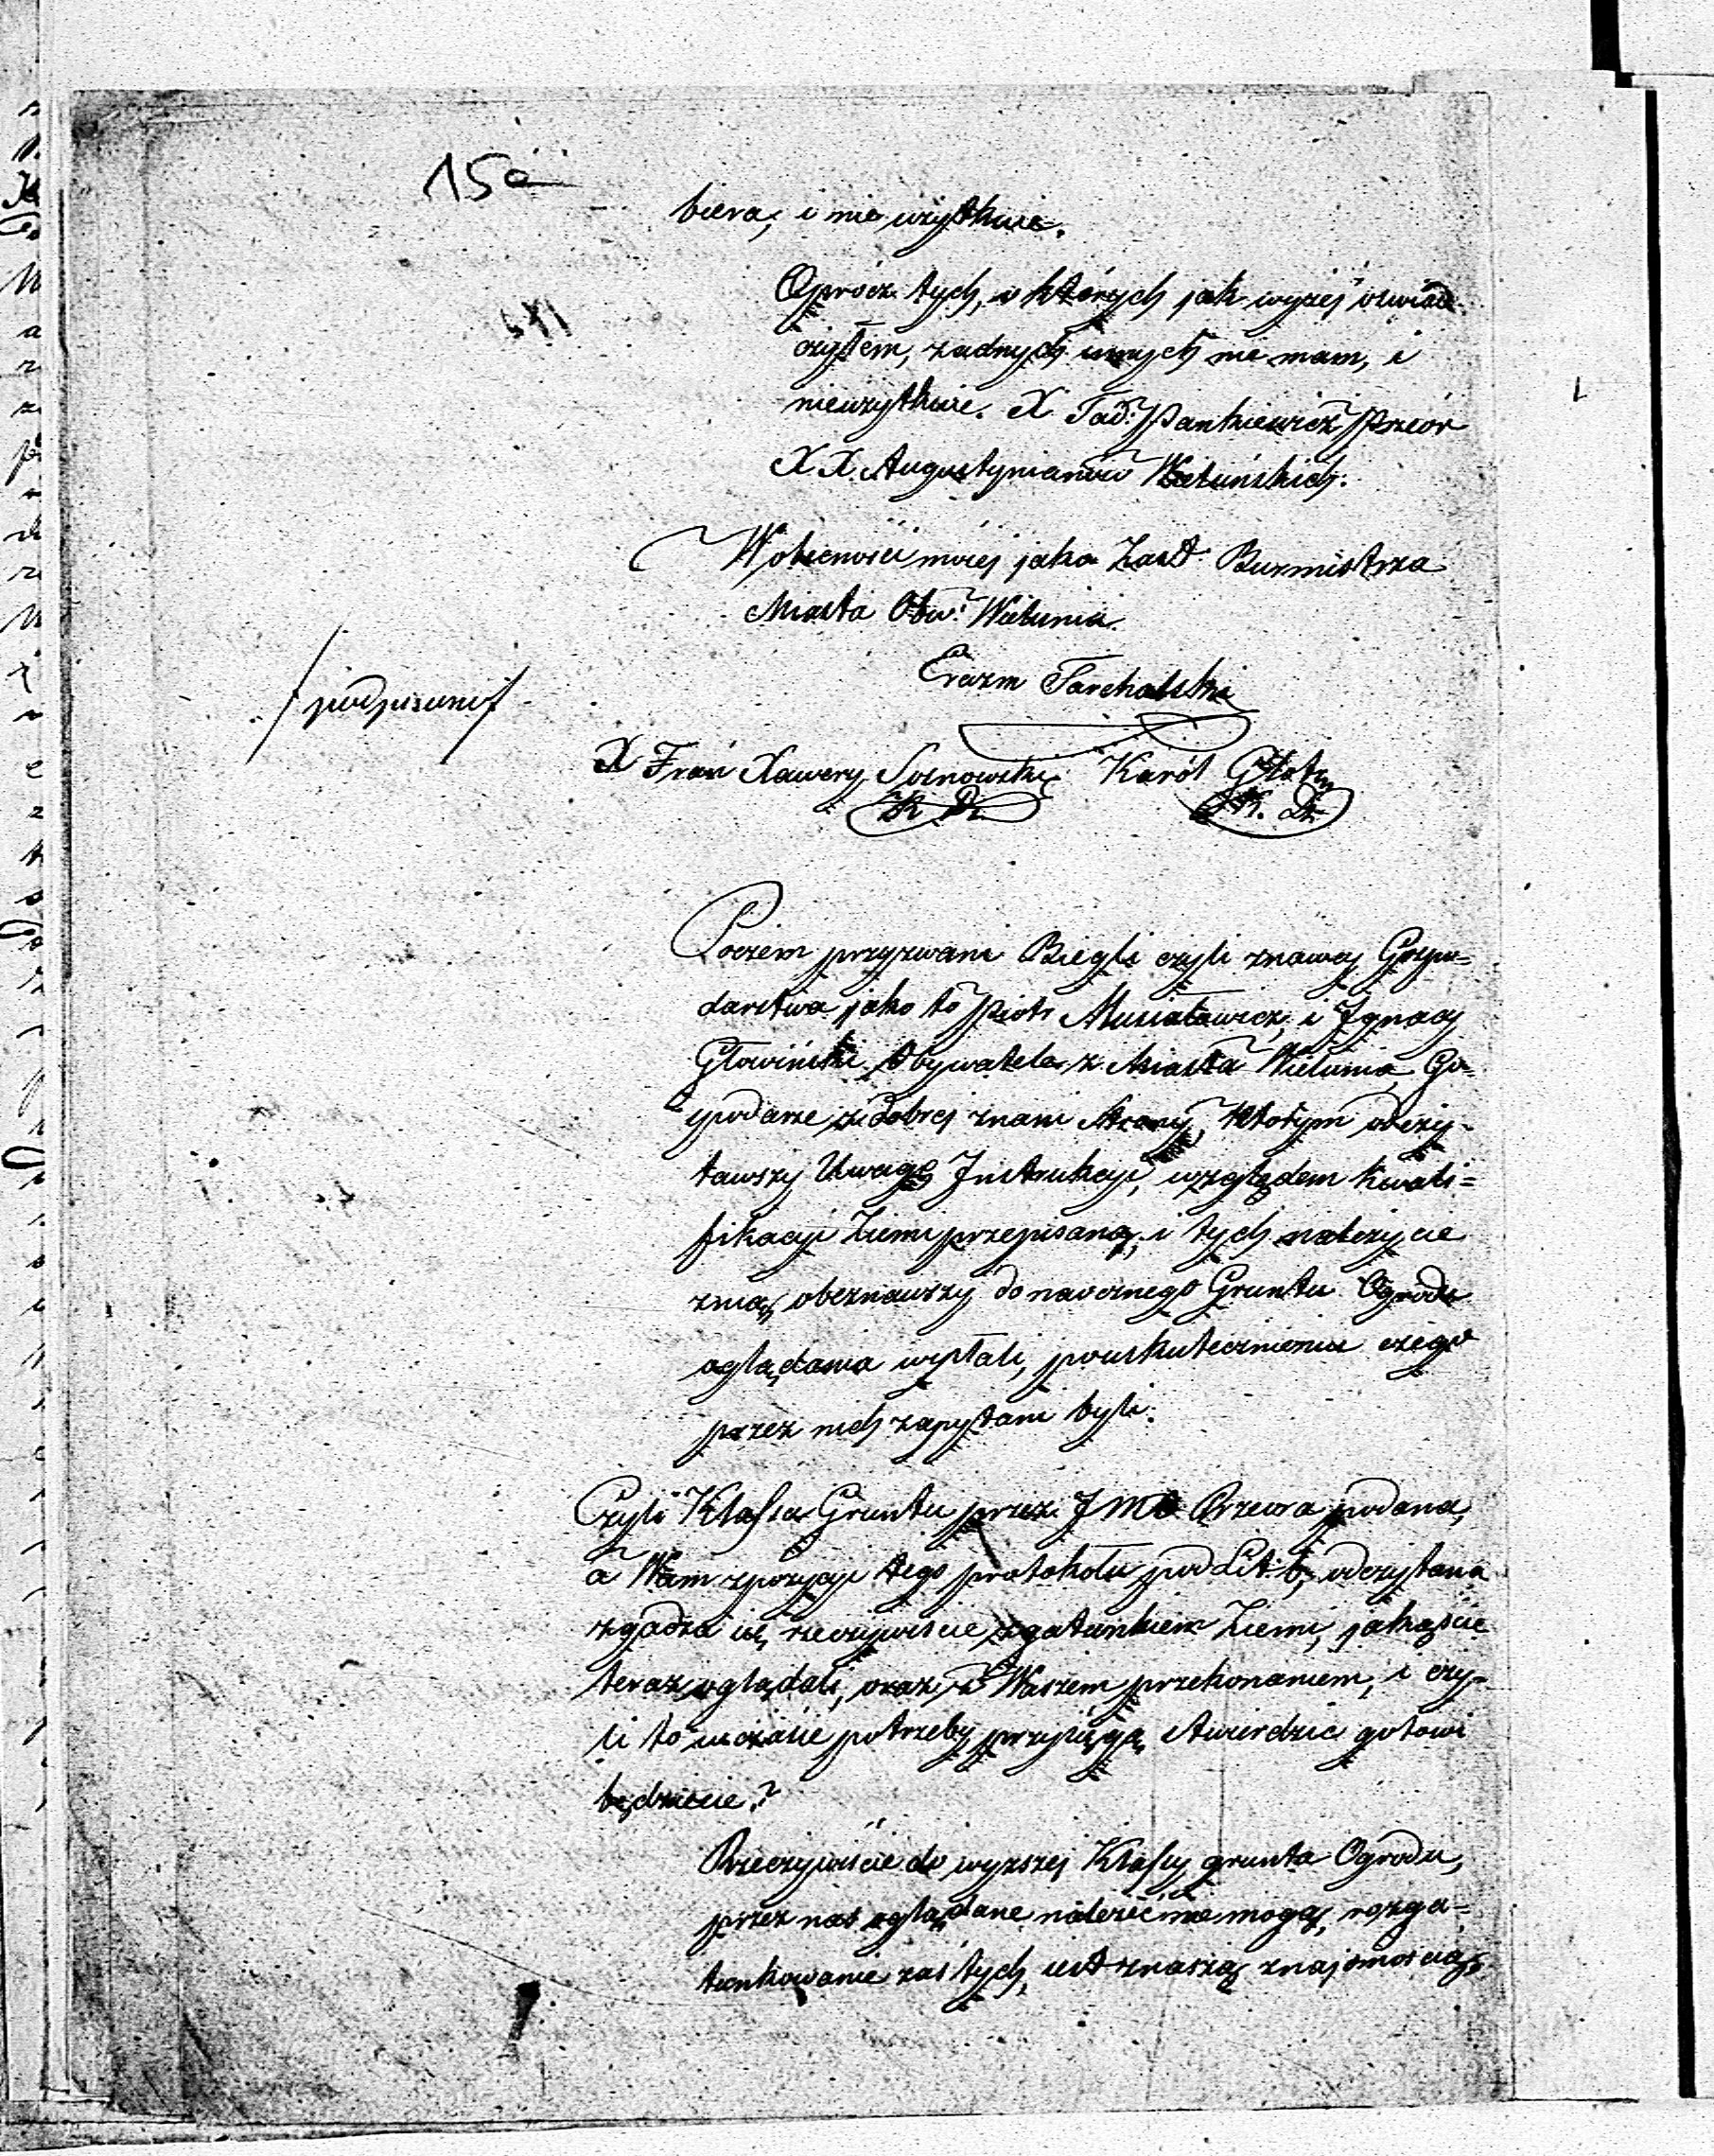 15a
biera, i nie użytkuie.
Oprócz tych, o których jak wyżej oświad
czyłem, żadnych innych nie mam, i
nieużytkuie. X Tad: Pankiewicz Przeor
XX. Augustynianów Wieluńskich.
Wobecności mojej jako Zast. Burmistrza
Miasta Obw: Wielunia.
Erazm Tarchalski
/podpisani/
X Fran Xawery Sosnowski Karól
K. D.
Poczem przyzwani Biegli czyli znawcy Gospo=
darstwa jako to Piotr Musiałowicz, i Ignacy
Głowiński Obywatele z Miasta Wielunia, Go=
spodarze z dobrej znani strony, którym odczy-
tawszy Uwagę Instrukcji, względem kwali=
fikacyi Ziemi przepisaną, i tych należycie
z nią obeznawszy do naocznego Gruntu Ogrodu
oglądania wysłali, po uskutecznieniu czego
przez nich zapytani byli.
Czyli Klassa Gruntu przez JMC Przeora podana,
a Wam z pozycyi tego protokołu pod Lit: b, odczytana
zgadza się rzeczywiście z gatunkiem Ziemi, jakąście
teraz oglądali, oraz z Waszem przekonaniem, i czy-
li to w czasie potrzeby przysięgą stwierdzić gotowi
będziecie?
Rzeczywiście do wyższej Klassy grunta Ogrodu,
przez nas oglądane należeć nie mogą, rozga=
tunkowanie zaś tych, jest z naszą znajomością,